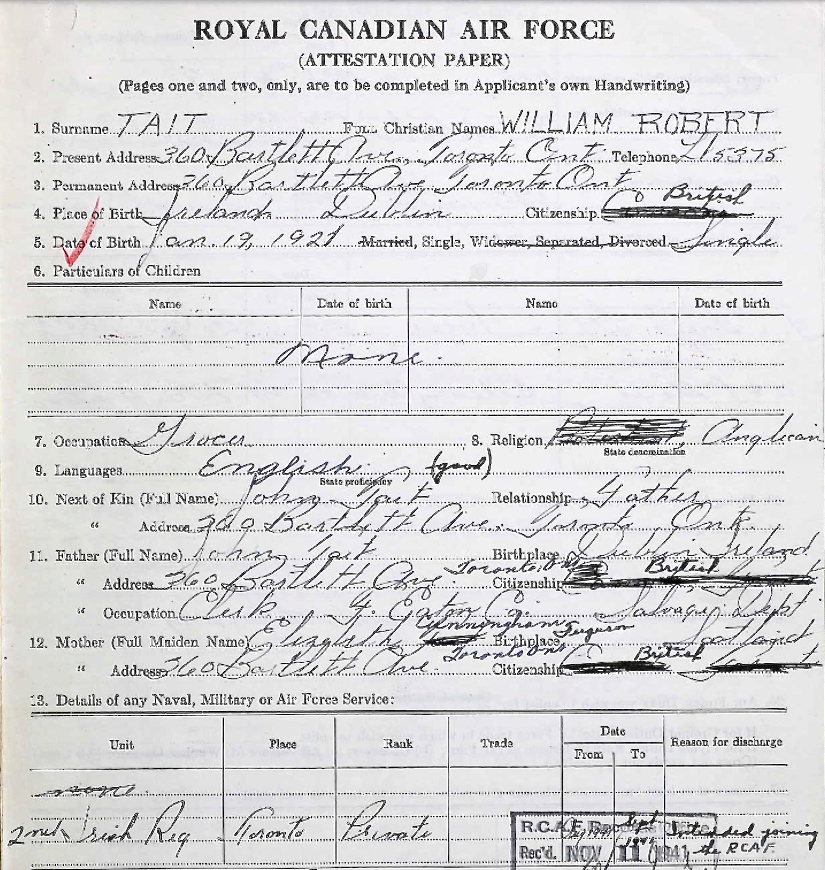 ROYAL CANADIAN AIR FORCE
(ATTESTATION PAPER)
(Pages one and two, only, are to be completed in Applicant's own Handwriting)
1. Surname TAIT Full Christian Names WILLIAM ROBERT
2. Present Address 360 Bartlett Ave, Toronto Ont Telephone 5375
3. Permanent Address 360 Bartlett Ave Toronto Ont
4. Place of Birth Ireland Dublin Citizenship British
5. Date of Birth Jan. 19, 1921 Married, Single, Widower, Separated, Divorced Single
6. Particulars of Children
Name Date of birth Name Date of birth
None.
7. Occupation Grocer 8. Religion Anglican
State denomination
9. Languages English (good)
State proficiency
10. Next of Kin (Full Name) John Tait Relationship Father
" Address 360 Bartlett Ave. Toronto Ont.
11. Father (Full Name) John Tait Birthplace Dublin Ireland
" Address 360 Bartlett Ave. Toronto, Ont Citizenship British
" Occupation Clerk, T. Eaton Co. Salvage Dept
12. Mother (Full Maiden Name) Elizabeth Cunningham Ferguson Birthplace Scotland
" Address 360 Bartlett Ave. Toronto Ont Citizenship British
13. Details of any Naval, Military or Air Force Service:
Unit Place Rank Trade Date From To Reason for discharge
none
2nd Irish Reg Toronto Private Sept Intended joining the R.C.A.F.
R.C.A.F.
Rec'd. NOV 11 1941